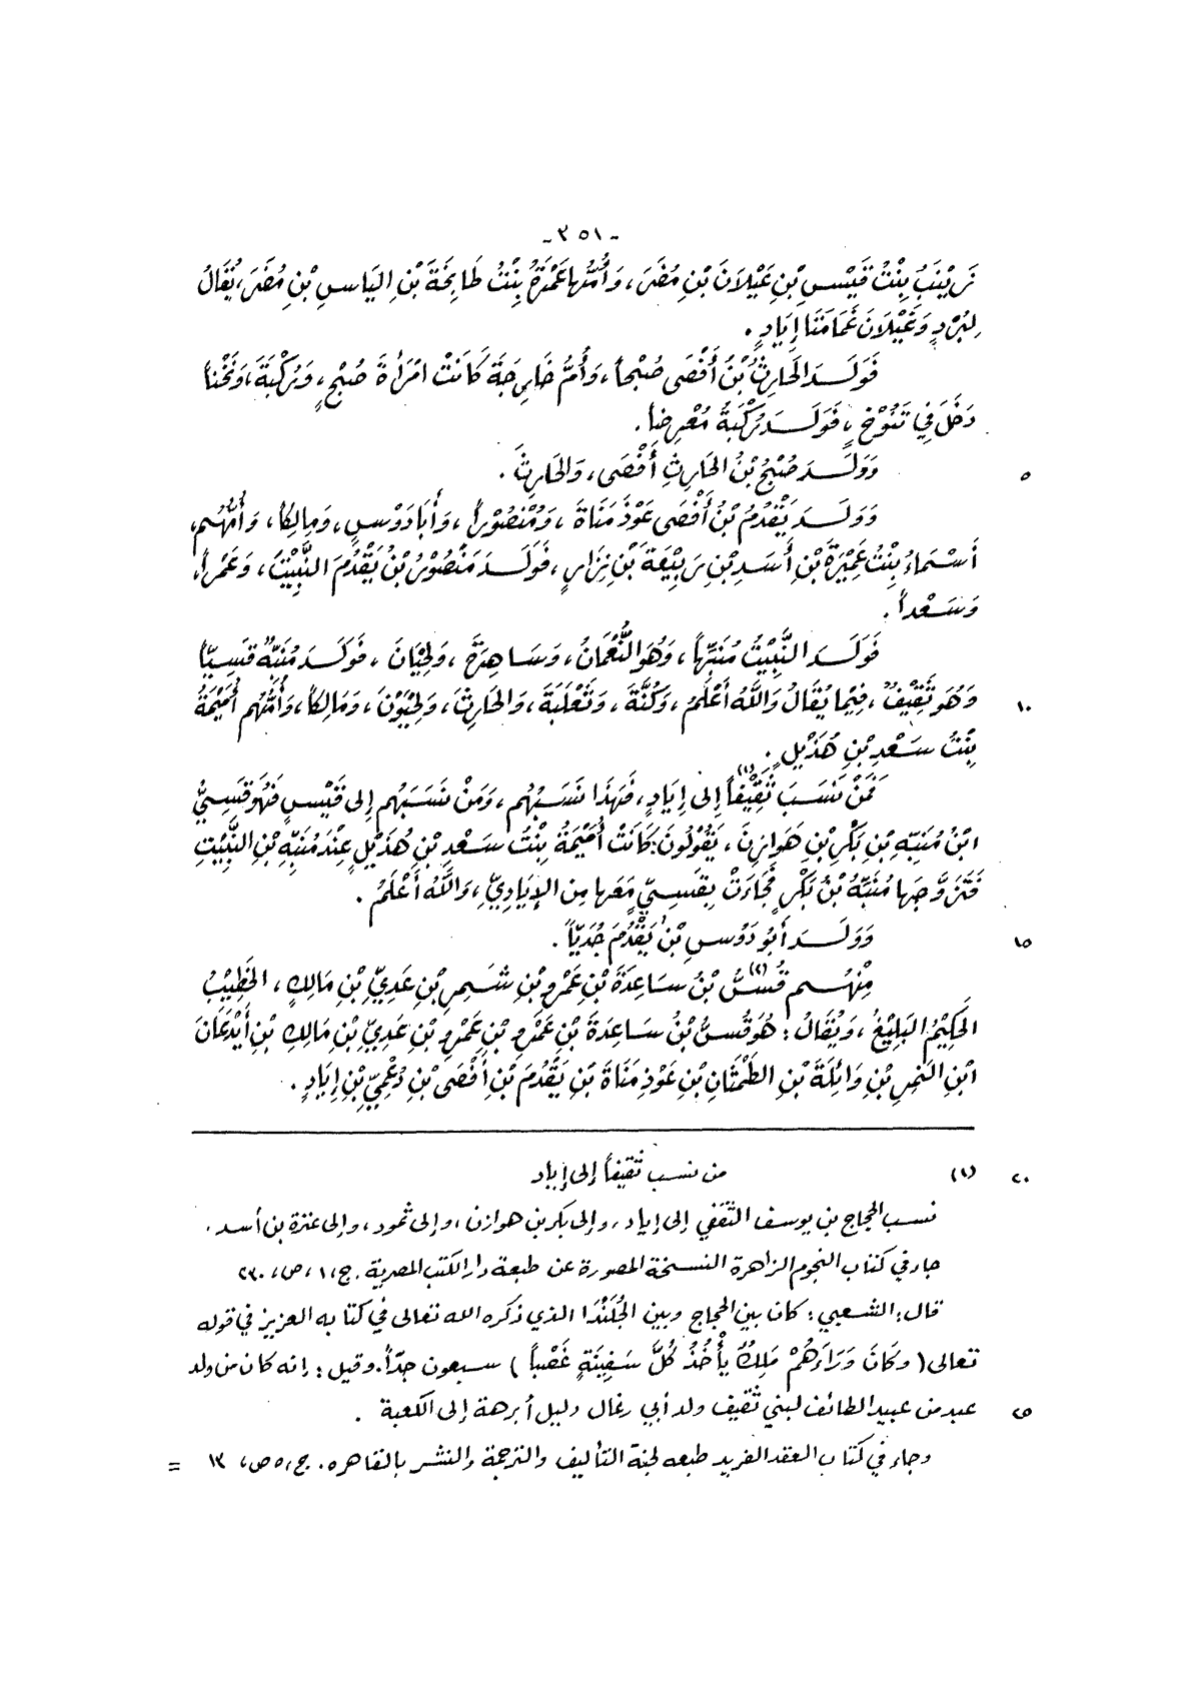 - ٣٥١ -
زَيْنَبُ بِنْتُ قَيْسِ بْنِ عَيْلَانَ بْنِ مُضَرَ، وَأُمُّهَا عَمْرَةُ بِنْتُ طَابِخَةَ بْنِ اليَاسِ بْنِ مُضَرَ، يُقَالُ
لِبُرْدٍ وَغَيْلَانَ غَمَامَتَا إِيَادٍ .
فَوَلَدَ الحَارِثُ بْنُ أَفْصَى صُبْحاً، وَأُمُّ خَارِجَةَ كَانَتْ امْرَأَةَ صُبْحٍ، وَبُرْكَبَةَ، وَنَحْناً
دَخَلَ فِي تَنُوْخٍ، فَوَلَدَ بُرْكَبَةُ مُعْرِضاً .
٥ وَوَلَدَ صُبْحُ بْنُ الحَارِثِ أَفْصَى، وَالحَارِثَ .
وَوَلَدَ يَقْدُمُ بْنُ أَفْصَى عَوْذَ مَنَاةَ، وَمَنْصُوْراً، وَأَبَا دَوْسٍ، وَمَالِكاً، وَأُمُّهُم
أَسْمَاءُ بِنْتُ عَمِيْرَةَ بْنِ أَسَدِ بْنِ رَبِيْعَةَ بْنِ نِزَارٍ، فَوَلَدَ مَنْصُوْرُ بْنُ يَقْدُمَ النَّبِيْتَ، وَعَمْراً،
وَسَعْداً .
فَوَلَدَ النَّبِيْتُ مُنَبِّهاً، وَهُوَ النُّعْمَانُ، وَسَاهِرَةَ، وَلِحْيَانَ، فَوَلَدَ مُنَبِّهٌ قَسِيّاً
١٠ وَهُوَ ثَقِيْفٌ، فِيْمَا يُقَالُ وَاللَّهُ أَعْلَمُ، وَكُنَّةَ، وَثَعْلَبَةَ، وَالحَارِثَ، وَلِحْيَوْنَ، وَمَالِكاً، وَأُمُّهُم أُمَيْمَةُ
بِنْتُ سَعْدِ بْنِ هُذَيْلٍ .
فَمَنْ نَسَبَ ثَقِيْفاً(١) إِلى إِيَادٍ، فَهَذَا نَسَبُهُم، وَمَنْ نَسَبَهُم إِلى قَيْسٍ فَهُوَ قَسِيُّ
ابْنُ مُنَبِّهِ بْنِ بَكْرِ بْنِ هَوَازِنَ، يَقُوْلُونَ: كَانَتْ أُمَيْمَةُ بِنْتُ سَعْدِ بْنِ هُذَيْلٍ عِنْدَ مُنَبِّهِ بْنِ النَّبِيْتِ
فَتَزَوَّجَهَا مُنَبِّهُ بْنُ بَكْرٍ فَجَاءَتْ بِقَسِيٍّ مَعَهَا مِنَ الإِيَادِيِّ، وَاللَّهُ أَعْلَمُ .
١٥ وَوَلَدَ أَبُو دَوْسِ بْنُ يَقْدُمَ جُدَيّاً .
مِنْهُم قُسُّ(٢) بْنُ سَاعِدَةَ بْنِ عَمْرِو بْنِ شَمِرِ بْنِ عَدِيِّ بْنِ مَالِكٍ، الخَطِيْبُ
الحَكِيْمُ البَلِيْغُ، وَيُقَالُ: هُوَ قُسُّ بْنُ سَاعِدَةَ بْنِ عَمْرِو بْنِ عَمْرِو بْنِ عَدِيِّ بْنِ مَالِكِ بْنِ أَيْدَعَانَ
ابْنِ النَّمِرِ بْنِ وَائِلَةَ بْنِ الطَّمَثَانِ بْنِ عَوْذِ مَنَاةَ بْنِ يَقْدُمَ بْنِ أَفْصَى بْنِ دُعْمِيِّ بْنِ إِيَادٍ .
٢٠ (١) من نسب ثقيفاً إلى إياد
نسب الحجاج بن يوسف الثقفي إلى إياد، وإلى بكر بن هوازن، وإلى ثمود، وإلى عنزة بن أسد .
جاء في كتاب النجوم الزاهرة النسخة المصورة عن طبعة دار الكتب المصرية . ج، ١، ص، ٢٣٠
قال: الشعبي: كان بين الحجاج وبين الجُلَنْدَا الذي ذكره الله تعالى في كتابه العزيز في قوله
تعالى ( وكَانَ وَرَاءَهُمْ مَلِكٌ يَأْخُذُ كُلَّ سَفِينَةٍ غَصْباً ) سبعون جدّاً. وقيل: إنه كان من ولد
٢٥ عبد من عبيد الطائف لبني ثقيف ولد أبي رغال دليل أبرهة إلى الكعبة .
وجاء في كتاب العقد الفريد طبعه لجنة التأليف والترجمة والنشر بالقاهره . ج، ٥ ص، ١٣ =